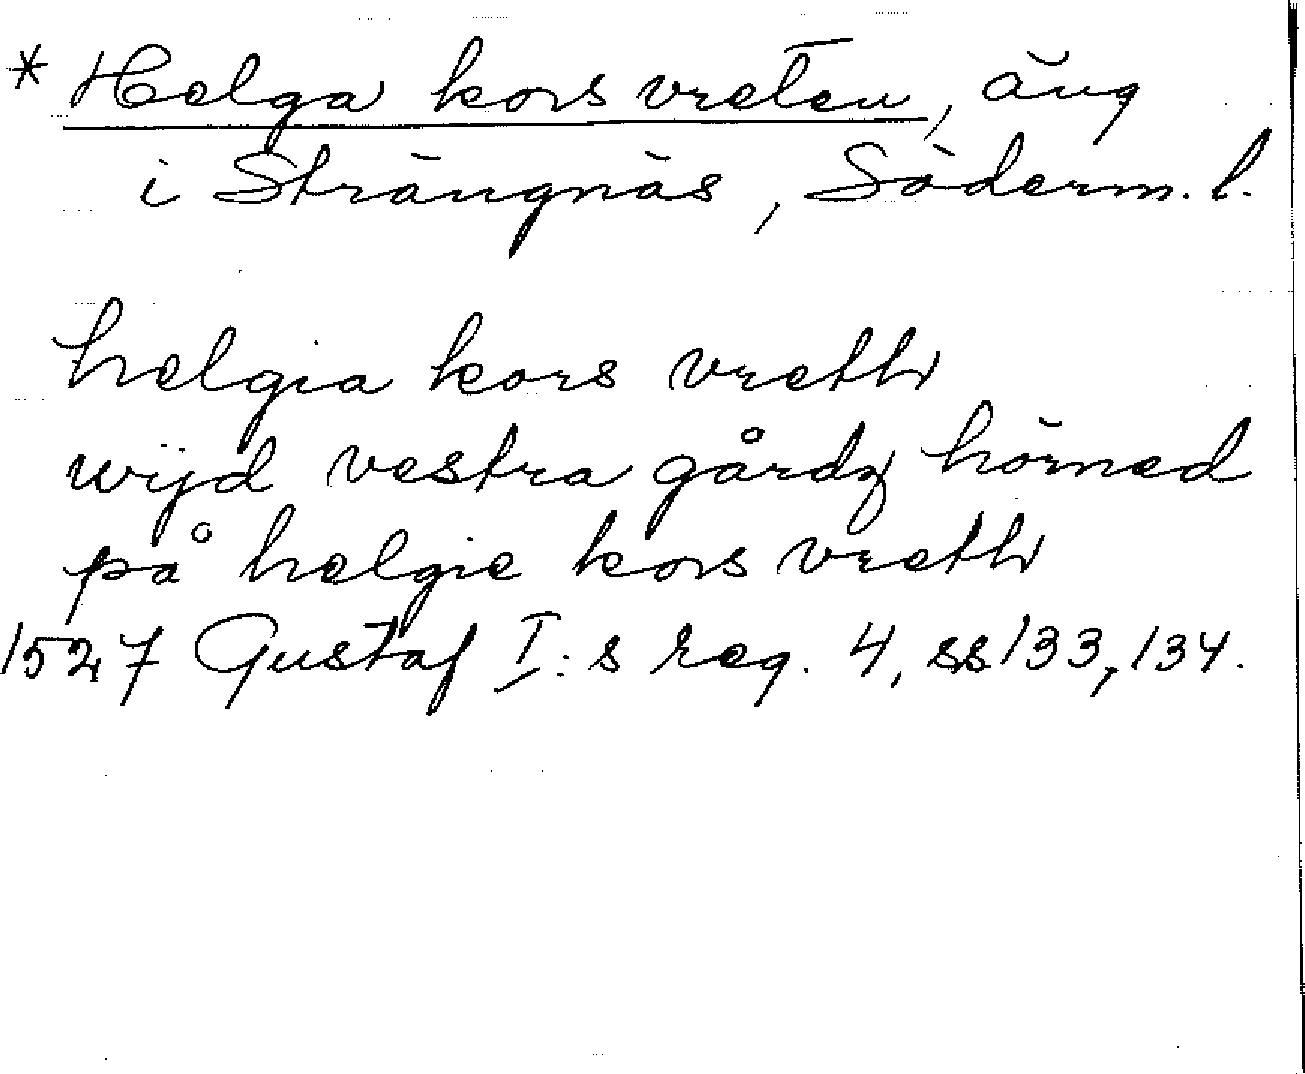 * Helga kors vreten, äng
i Strängnäs, Söderm. l.
helgia kors vreth
wijd vestra gårdz hörned
på helgie kors vreth
1527 Gustaf I:s reg. 4, ss 133, 134.